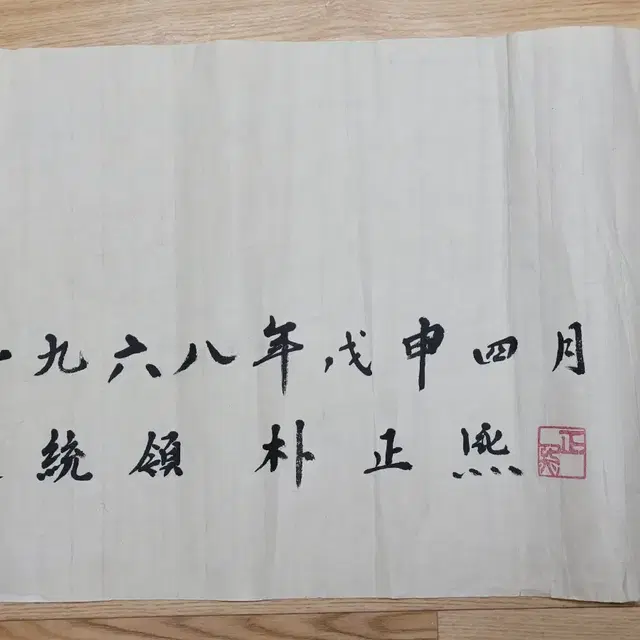 一九六八年戊申四月
統領 朴正熙
正熙